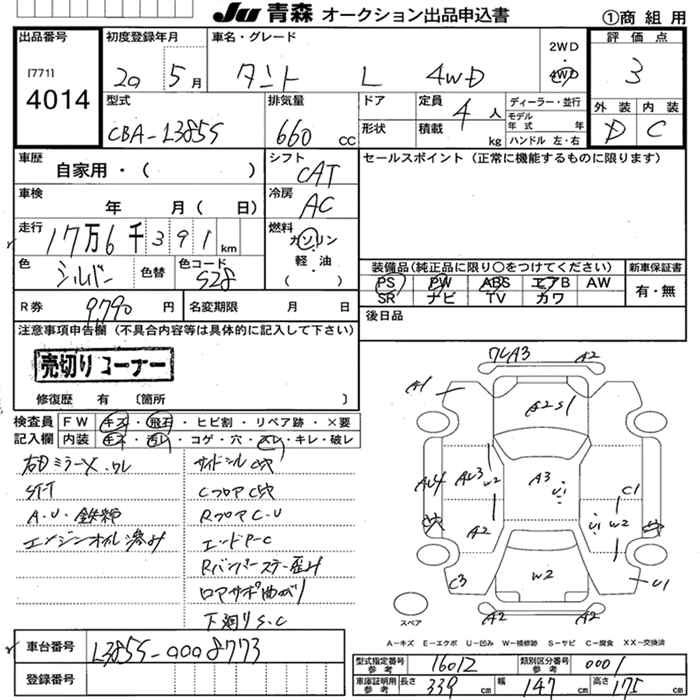 JU 青森 オークション出品申込書
①商組用
出品番号
[771]
4014
初度登録年月
20 5月
車名・グレード
タント L 4WD
2WD
・
4WD
評価点
3
型式
CBA-L385S
排気量
660 cc
ドア
形状
定員
4 人
積載
kg
ディーラー・並行
モデル
年式 年
ハンドル 左・右
外装
D
内装
C
車歴
自家用・( )
シフト
CAT
セールスポイント(正常に機能するものに限ります)
車検
年 月( 日)
冷房
AC
走行
17万6千391km
燃料
ガソリン
軽・油
( )
色
シルバー
色替
色コード
S28
装備品(純正品に限り○をつけてください)
PS PW ABS エアB AW
SR ナビ TV カワ
新車保証書
有・無
R券
9,790 円
名変期限 月 日
後日品
注意事項申告欄(不具合内容等は具体的に記入して下さい)
売切りコーナー
修復歴 有 〔箇所 〕
検査員
記入欄
FW キズ・飛石・ヒビ割・リペア跡・×要
内装 キズ・汚レ・コゲ・穴・スレ・キレ・破レ
右ミラーX.ワレ
サイドシルC穴
CフロアC穴
A.U・鉄粉
RフロアC.U
エンジンオイル滲み
エンドP-C
Rバンパーステー歪み
ロアサポ曲がり
下廻りS.C
ワレA3
A2
A1
A2S1
AU4
AU3
W2
A3
U1
C1
U1
W2
A2
C3
W2
U1
A2
A2
スペア
A-キズ E-エクボ U-凹み W-補修跡 S-サビ C-腐食 XX-交換済
車台番号
L385S-0008773
登録番号
型式指定番号
参考
16012
類別区分番号
参考
0001
車庫証明用
参考
長さ 339 cm
幅 147 cm
高さ 175 cm